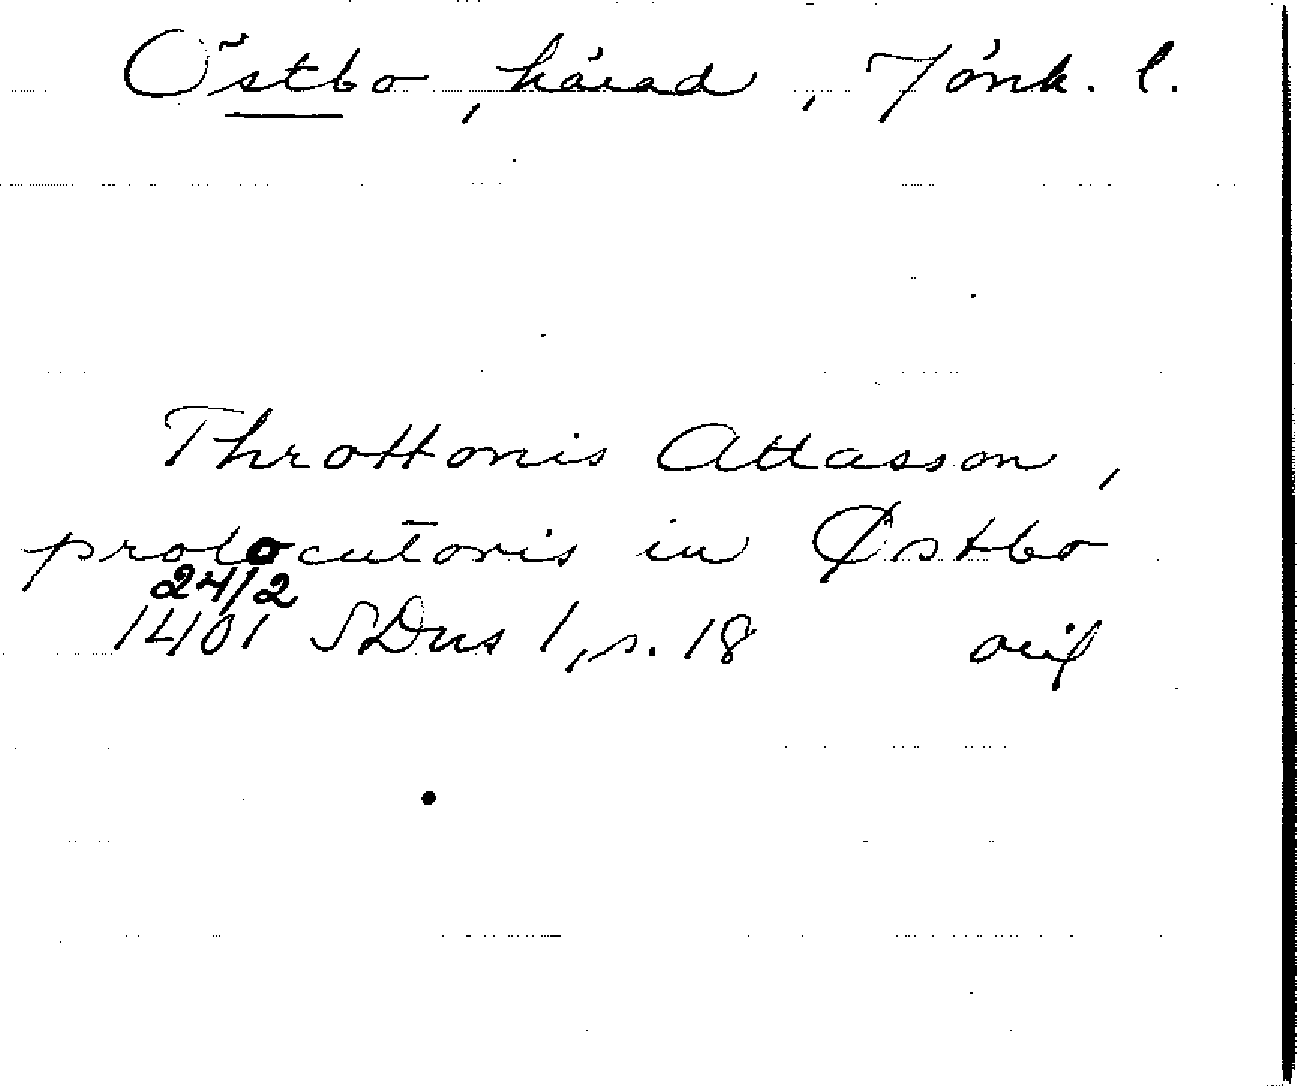 Östbo, härad, Jönk. l.
Throttonis Attasson,
prolocutoris in Østbo
24/2
1401 SDns 1, s. 18 avif